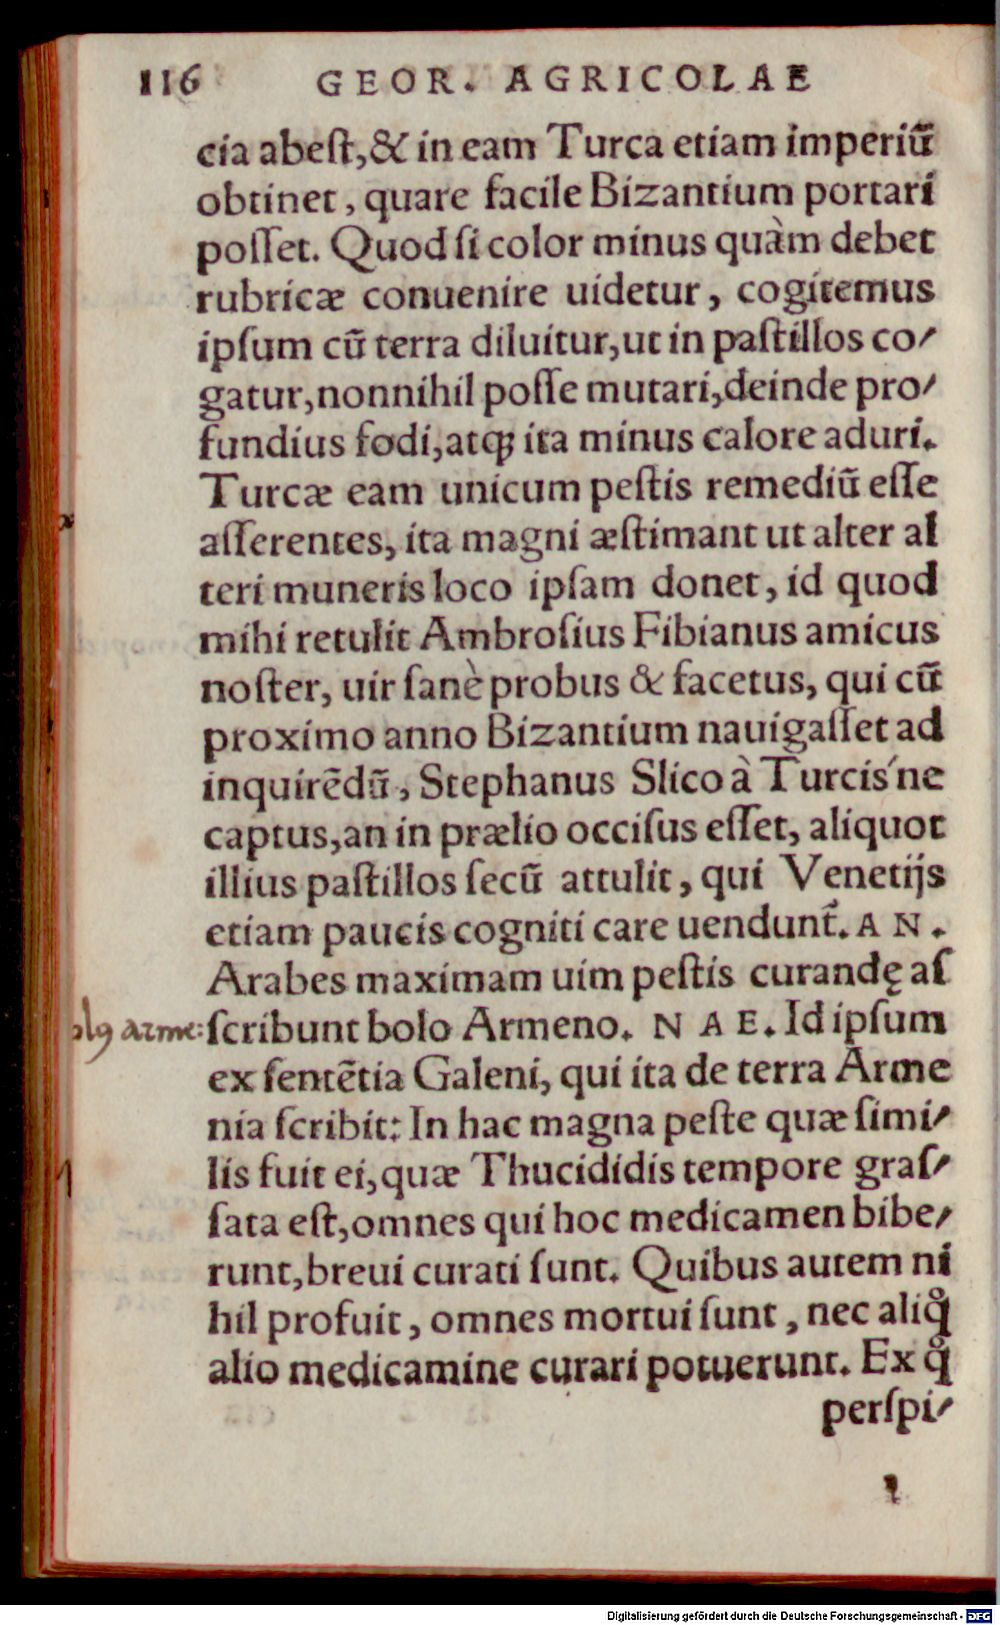 116 GEOR. AGRICOLAE
cia abeſt,& in eam Turca etiam imperiũ
obtinet, quare facile Bizantium portari
poſſet. Quod ſi color minus quàm debet
rubricæ conuenire uidetur, cogitemus
ipſum cũ terra diluitur,ut in paſtillos co⸗
gatur,nonnihil poſſe mutari,deinde pro⸗
fundius fodi,atq; ita minus calore aduri.
Turcæ eam unicum peſtis remediũ eſſe
aſſerentes, ita magni æſtimant ut alter al
teri muneris loco ipſam donet, id quod
mihi retulit Ambroſius Fibianus amicus
noſter, uir ſanè probus & facetus, qui cũ
proximo anno Bizantium nauigaſſet ad
inquirẽdũ, Stephanus Slico à Turcis'ne
captus,an in prælio occiſus eſſet, aliquot
illius paſtillos ſecũ attulit, qui Venetijs
etiam paucis cogniti care uendunt̃. AN.
Arabes maximam uim peſtis curandę aſ
olꝰ arme: ſcribunt bolo Armeno. NAE. Id ipſum
ex ſentẽtia Galeni, qui ita de terra Arme
nia ſcribit: In hac magna peſte quæ ſimi⸗
lis fuit ei,quæ Thucididis tempore graſ⸗
ſata eſt,omnes qui hoc medicamen bibe⸗
runt,breui curati ſunt. Quibus autem ni
hil profuit, omnes mortui ſunt, nec aliq̊
alio medicamine curari potuerunt. Ex q̊
perſpi⸗
Digitalisierung gefördert durch die Deutsche Forschungsgemeinschaft - DFG